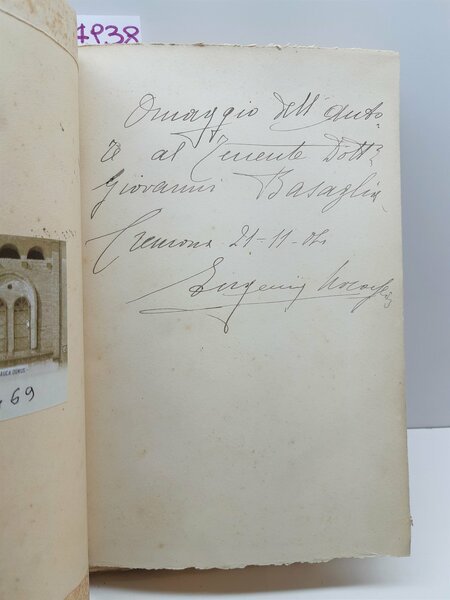 4938
Omaggio dell'Auto-
re al Tenente Dott.
Giovanni Basaglia
Cremona 21-11-
Eugenio
69